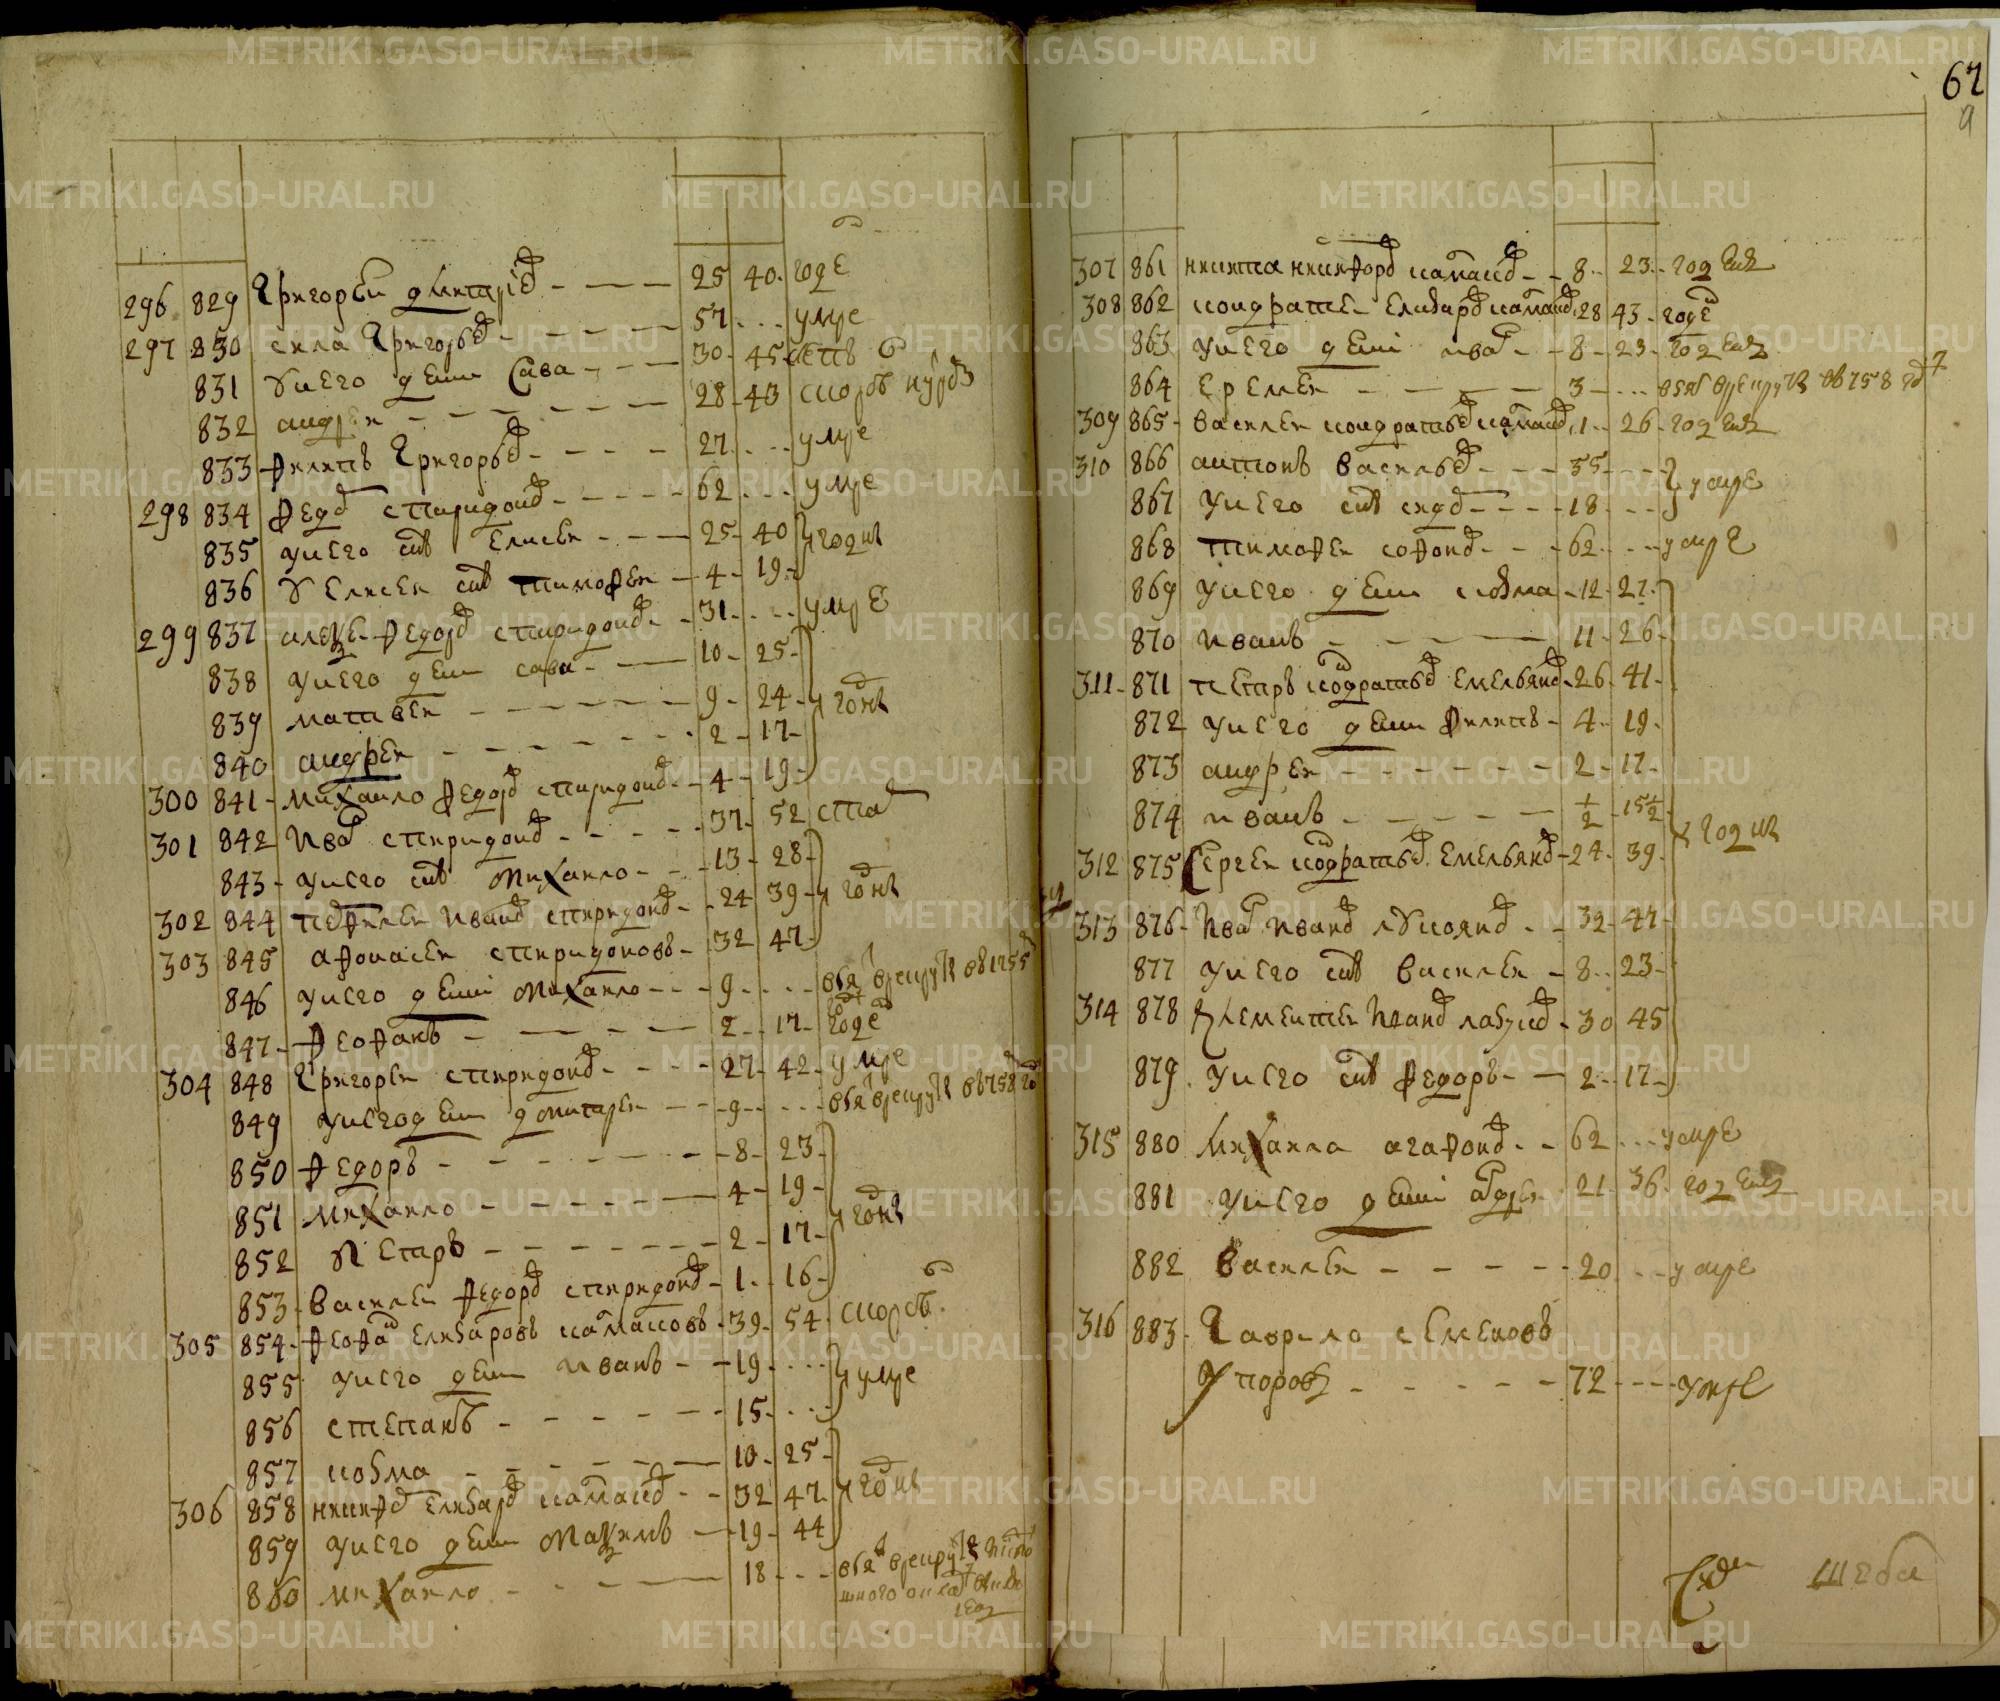 METRIKI.GASO-URAL.RU
67
296 829 Григореи Дмитриев 25 40 годе
297 830 Сила Григорьев 57 умре
831 У него дети Сава 30 45
832 Андреи 28 43
833 Филипъ Григорьев 27 умре
298 834 Федор Спиридонов 62 умре
835 У него сынъ Елисеи 25 40 годны
836 У Елисеи сынъ Тимофеи 4 19
299 837 Алексеи Федоров Спиридонов 31 умре
838 У него дети Сава 10 25
839 Матвеи 9 24 годны
840 Андреи 2 17
300 841 Михаило Федоров Спиридонов 4 19
301 842 Иван Спиридонов 37 52 стар
843 У него сынъ Михаило 13 28
302 844 Перфилеи Иванов Спиридонов 24 39 годны
303 845 Афонасеи Спиридоновъ 32 47
846 У него дети Михаило 9 взят в рекруты в 1755
847 Феофанъ 2 17 годе
304 848 Григореи Спиридонов 27 42 умре
849 У него дети Дмитреи 9 взят в рекруты в 758 год
850 Федоръ 8 23
851 Михаило 4 19 годны
852 Петръ 2 17
853 Василеи Федоров Спиридонов 1 16
305 854 Феофан Елизаровъ Камановъ 39 54 скорбь
855 У него дети Иванъ 19 умре
856 Степанъ 15
857 Козма 10 25
306 858 Никифор Елизаров Каманов 32 47 годны
859 У него дети Максимъ 19 44
860 Михаило 18 взят в рекруты
307 861 Никита Никифоров Каманов 8 23 годенъ
308 862 Кондратеи Елизаров Каманов 28 43 годе
863 У него дети Иван 8 23 годенъ
864 Еремеи 3 взят в рекруты въ 758 год
309 865 Василеи Кондратьев Каманов 1 26 годенъ
310 866 Антонъ Васильев 35 умре
867 У него сынъ 18
868 Тимофеи Софонов 62 умре
869 У него дети Козма 12 27
870 Иванъ 11 26
311 871 Петръ Кодратьев Емельянов 26 41
872 У него дети Филипъ 4 19
873 Андреи 2 17
874 Иванъ 1/2 15 1/2 годны
312 875 Сергеи Кодратьев Емельянов 24 39
313 876 Иван Иванов Лукоянов 32 47
877 У него сынъ Василеи 8 23
314 878 Клементеи Иванов 30 45
879 У него сынъ Федоръ 2 17
315 880 Михаила Агафонов 62 умре
881 У него дети Андреи 21 36 годенъ
882 Василеи 20 умре
316 883 Гаврило Семеновъ
Упоровъ 72 умре